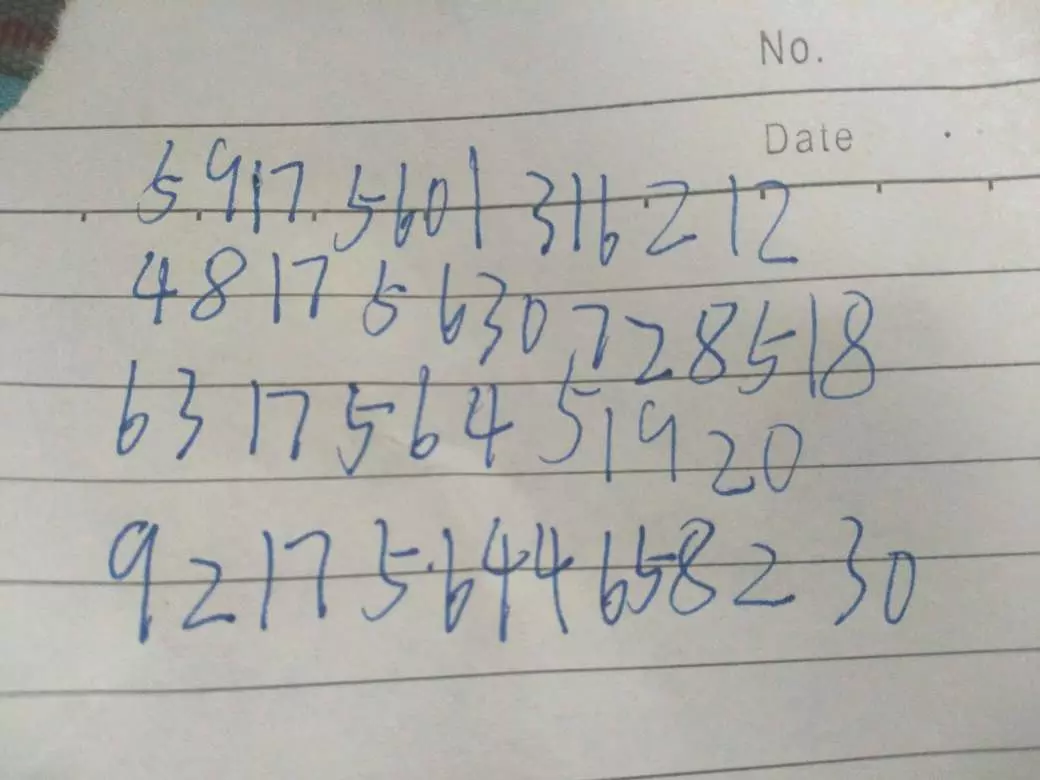 No.
Date
5917 5601 316212
4817 5630728518
6317564 51920
92175644658230